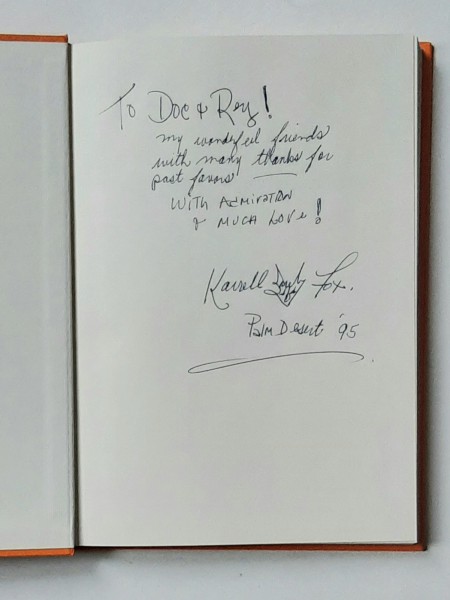 To Doc & Roy!
my wonderful friends
with many thanks for
past favors
WITH ADMIRATION
& MUCH LOVE!
Karrell Fox.
Palm Desert '95